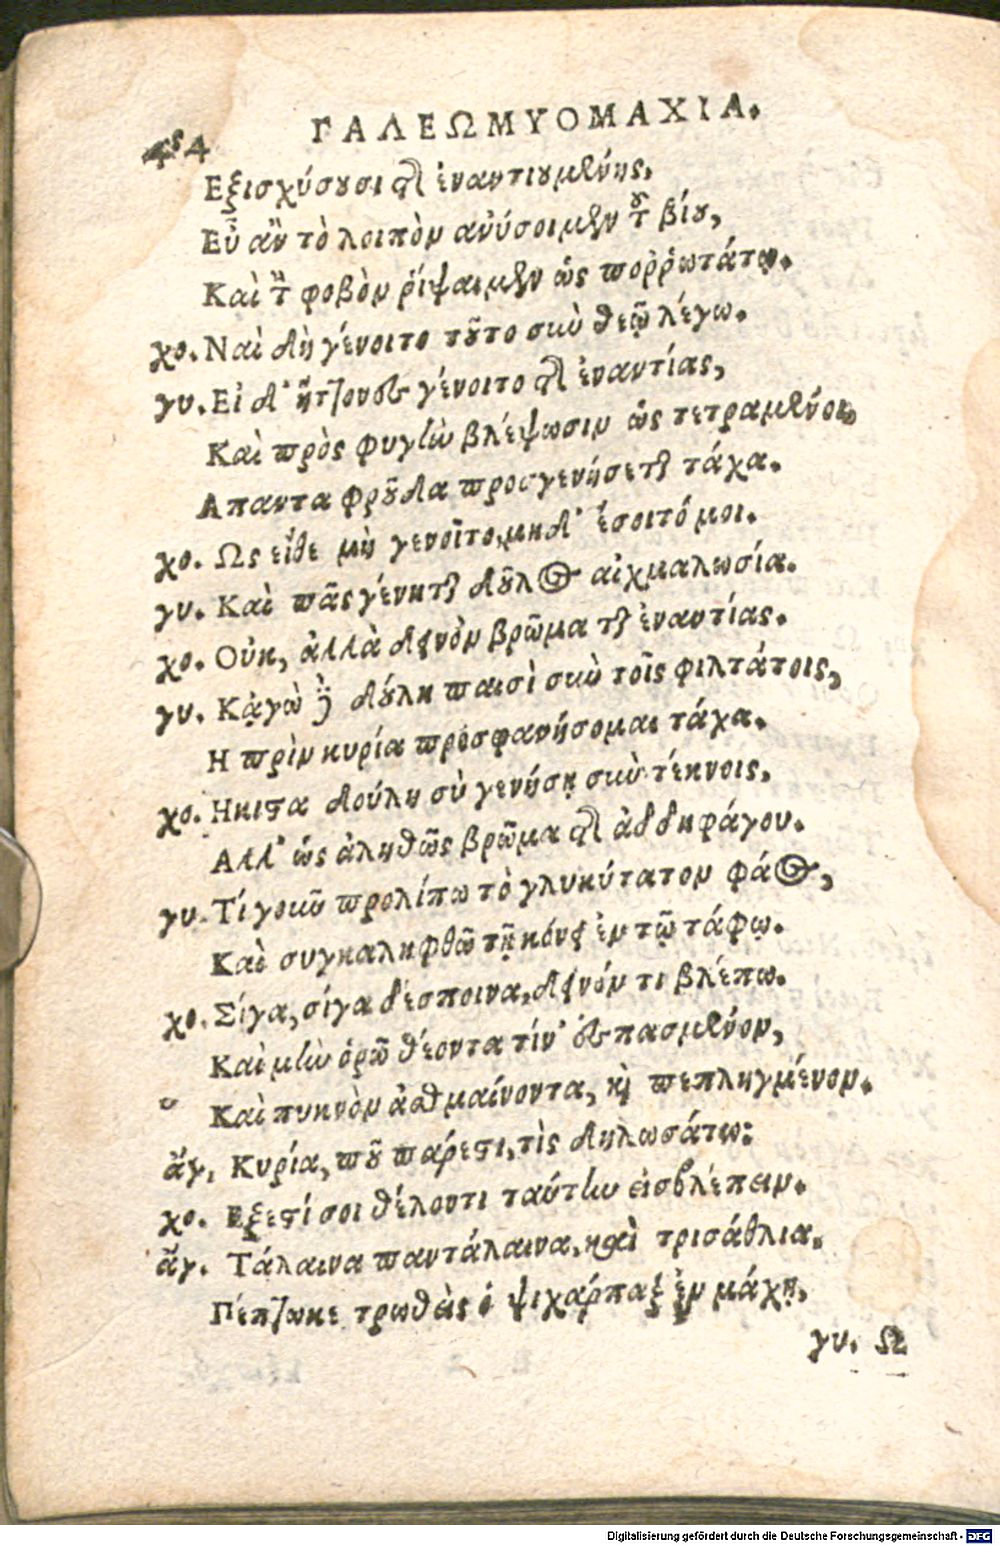 454
ΓΑΛΕΩΜΥΟΜΑΧΙΑ.
Εξισχύσουσι τῆς ἐναντιουμένης,
Εὖ ἂν τὸ λοιπὸν ἀνύσοιμεν τοῦ βίου,
Καὶ τὸν φοβὸν ῥίψαιμεν ὡς ποῤῥωτάτω.
χο. Ναὶ δὴ γένοιτο τοῦτο σὺν θεῷ λέγω.
γυ. Εἰ δ' ἥττονες γένοιτο τῆς ἐναντίας,
Καὶ πρὸς φυγὴν βλέψωσιν ὡς τετραμένοι,
Απαντα φροῦδα προσγενήσεται τάχα.
χο. Ως εἴθε μὴ γενοῖτο, μηδ' ἔσοιτό μοι.
γυ. Καὶ πᾶς γένηται δοῦλος αἰχμαλωσία.
χο. Οὐκ, ἀλλὰ δεινὸν βρῶμα τῆς ἐναντίας.
γυ. Κᾀγὼ δὲ δούλη παισὶ σὺν τοῖς φιλτάτοις,
Η πρὶν κυρία προσφανήσομαι τάχα.
χο. Ηκιστα δούλη σὺ γενήσῃ σὺν τέκνοις,
Αλλ' ὡς ἀληθῶς βρῶμα τῆς ἀδδηφάγου.
γυ. Τί γοκῦ προλίπω τὸ γλυκύτατον φάος,
Καὶ συγκαληφθῶ τῇ κόνει ἐν τῷ τάφῳ.
χο. Σίγα, σίγα δέσποινα, δεινόν τι βλέπω.
Καὶ μὴν ὁρῶ θέοντα τίν' ἐσπασμένον,
Καὶ πυκνὸν ἀσθμαίνοντα, καὶ πεπληγμένον.
ἄγ. Κυρία, ποῦ πάρεστι, τὶς δηλωσάτω;
χο. Εξεστί σοι θέλοντι ταύτην εἰσβλέπειν.
ἄγ. Τάλαινα παντάλαινα, καὶ τρισάθλια.
Πέπτωκε τρωθεὶς ὁ ψιχάρπαξ ἐν μάχῃ,
γυ. Ω
Digitalisierung gefördert durch die Deutsche Forschungsgemeinschaft - DFG